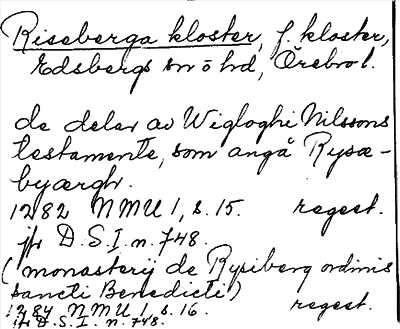 Riseberga kloster, f. kloster,
Edsbergs sn o hd, Örebro l.
de delar av Wigloghi Nilssons
testamente, som angå Rysæ-
byærgh.
1282 NMU 1, s. 15. regest.
jfr D.S.I. n. 748.
(monasterij de Rysiberg ordinis
sancti Benedicti)
1284 NMU 1, s. 16. regest.
jfr D.S.I. n. 748.